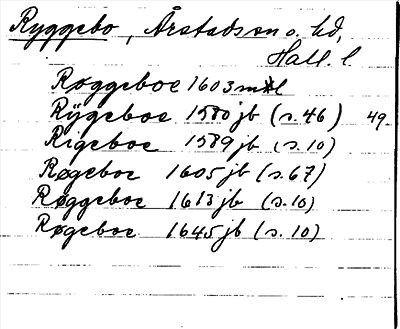 Ryggebo, Årstads sn o. hd,
Hall. l.
Røggeboe 1603 mtl
Rÿgeboe 1580 jb (s. 46) 49.
Rigeboe 1589 jb (s. 10)
Røgeboe 1605 jb (s. 67)
Røggeboe 1613 jb (s. 10)
Røgeboe 1645 jb (s. 10)